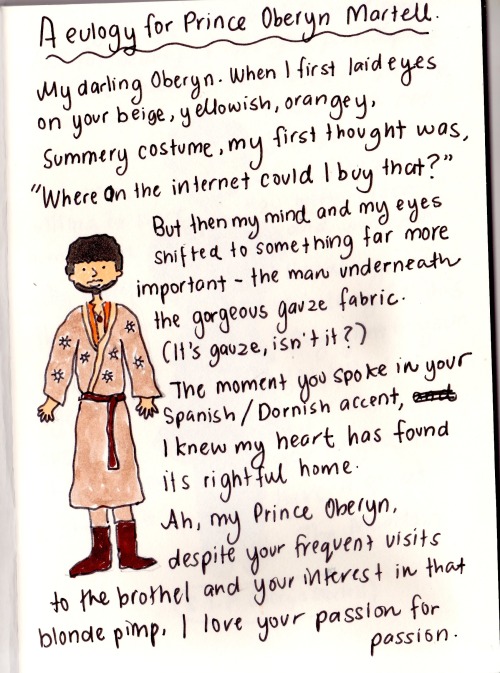 A eulogy for Prince Oberyn Martell.
My darling Oberyn. When I first laid eyes
on your beige, yellowish, orangey,
summery costume, my first thought was,
"Where on the internet could I buy that?"
But then my mind and my eyes
shifted to something far more
important - the man underneath
the gorgeous gauze fabric.
(It's gauze, isn't it?)
The moment you spoke in your
Spanish/Dornish accent, and
I knew my heart has found
its rightful home.
Ah, my Prince Oberyn,
despite your frequent visits
to the brothel and your interest in that
blonde pimp, I love your passion for
passion.